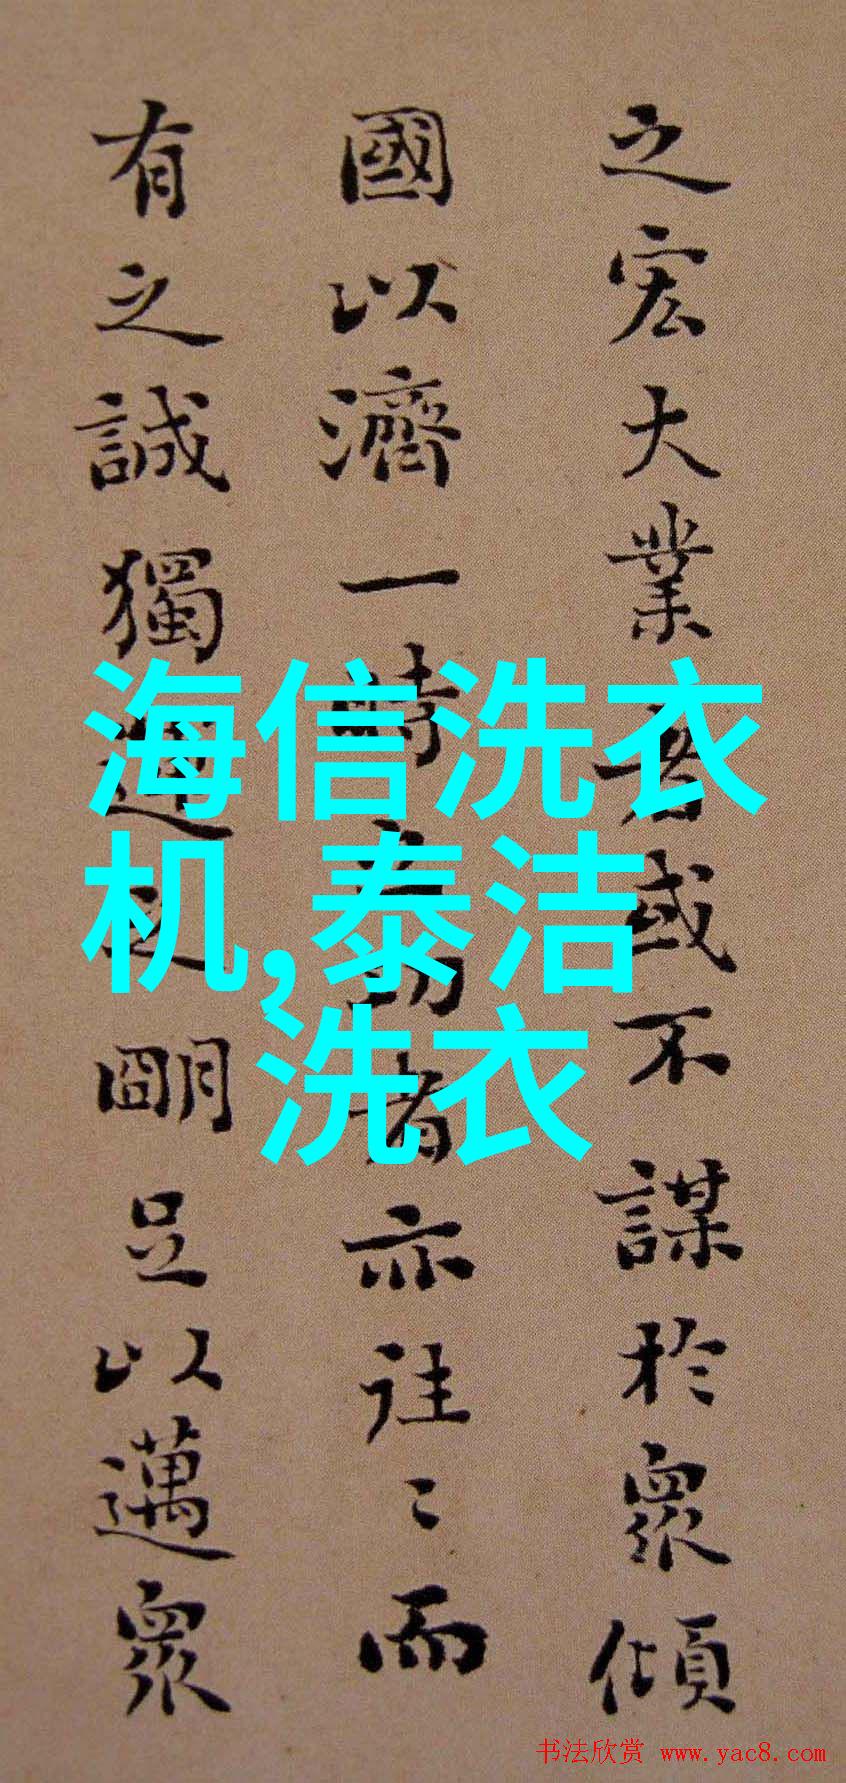 之宏大業者或不謀於衆傾
國以濟一時之功者亦往〻而
有之誠獨見之明足以邁衆
海信洗衣
机,泰洁
洗衣
书法欣赏 www.yac8.com